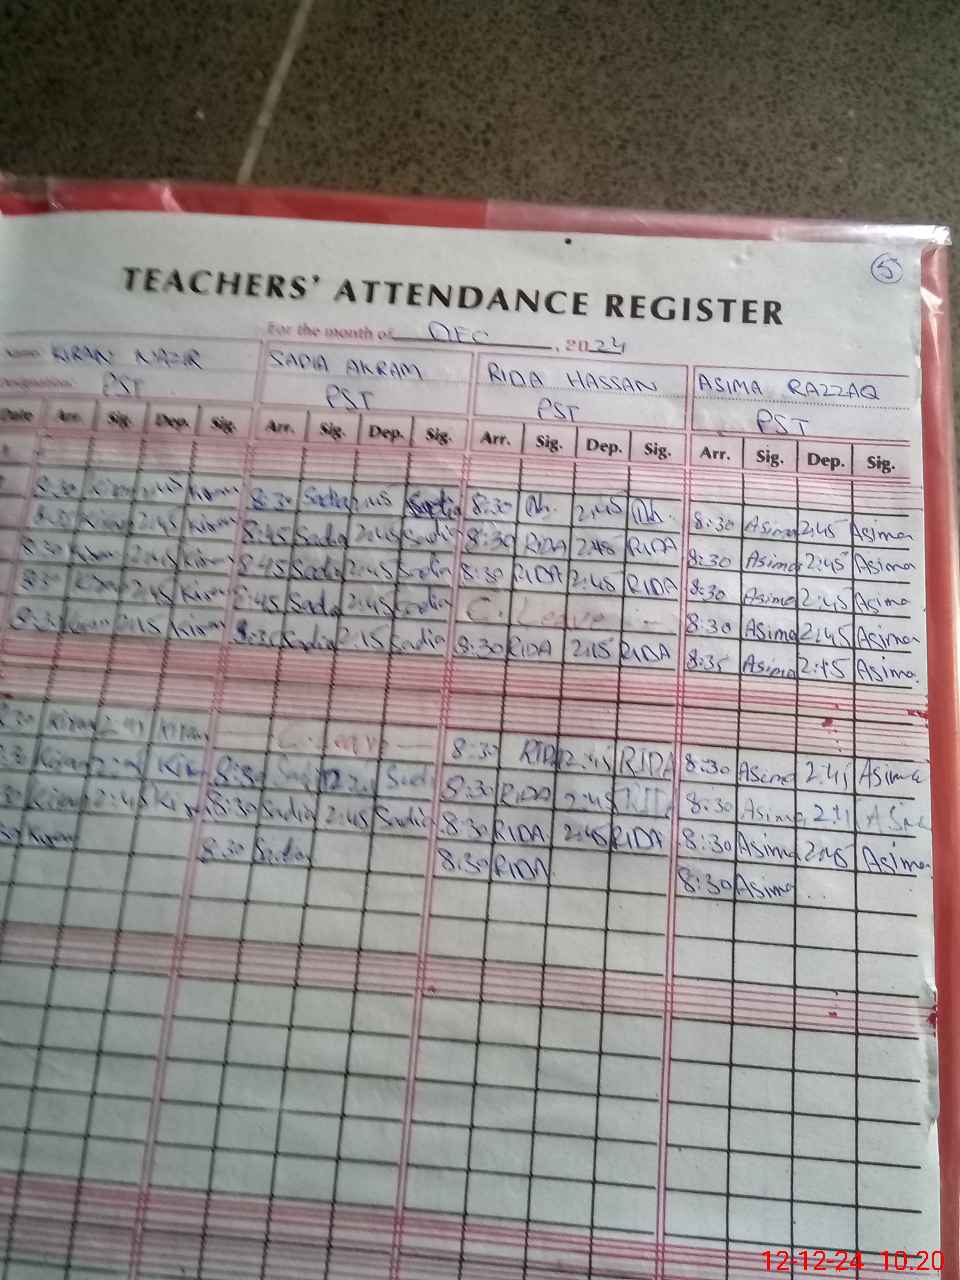 5
TEACHERS' ATTENDANCE REGISTER
For the month of DEC, 2024
Name: KIRAN NAZIR SADIA AKRAM RIDA HASSAN ASIMA RAZZAQ
Designation: PST PST PST PST
Date Arr. Sig. Dep. Sig. Arr. Sig. Dep. Sig. Arr. Sig. Dep. Sig. Arr. Sig. Dep. Sig.
8:30 Kiran Kiran 8:30 Sadia 2:45 Sadia 8:30 2:45 8:30 Asima 2:45 Asima
8:30 Kiran 2:45 Kiran 8:45 Sadia 2:45 Sadia 8:30 RIDA 2:45 RIDA 8:30 Asima 2:45 Asima
8:30 Kiran 2:45 Kiran 8:45 Sadia 2:45 Sadia 8:30 RIDA 2:45 RIDA 8:30 Asima 2:45 Asima
8:30 Kiran 2:45 Kiran 8:45 Sadia 2:45 Sadia C. Leave 8:30 Asima 2:45 Asima
8:30 Kiran 2:15 Kiran 8:30 Sadia 2:15 Sadia 8:30 RIDA 2:15 RIDA 8:35 Asima 2:15 Asima
8:30 Kiran Kiran C. Leave 8:30 RIDA 2:45 RIDA 8:30 Asima 2:45 Asima
Kiran 8:30 8:30 RIDA 2:45 RIDA 8:30 Asima Asima
30 Kiran 2:45 8:30 Sadia 2:45 Sadia 8:30 RIDA 2:45 RIDA 8:30 Asima 2:45 Asima
30 Kiran 8:30 Sadia 8:30 RIDA 8:30 Asima
12-12-24 10.20